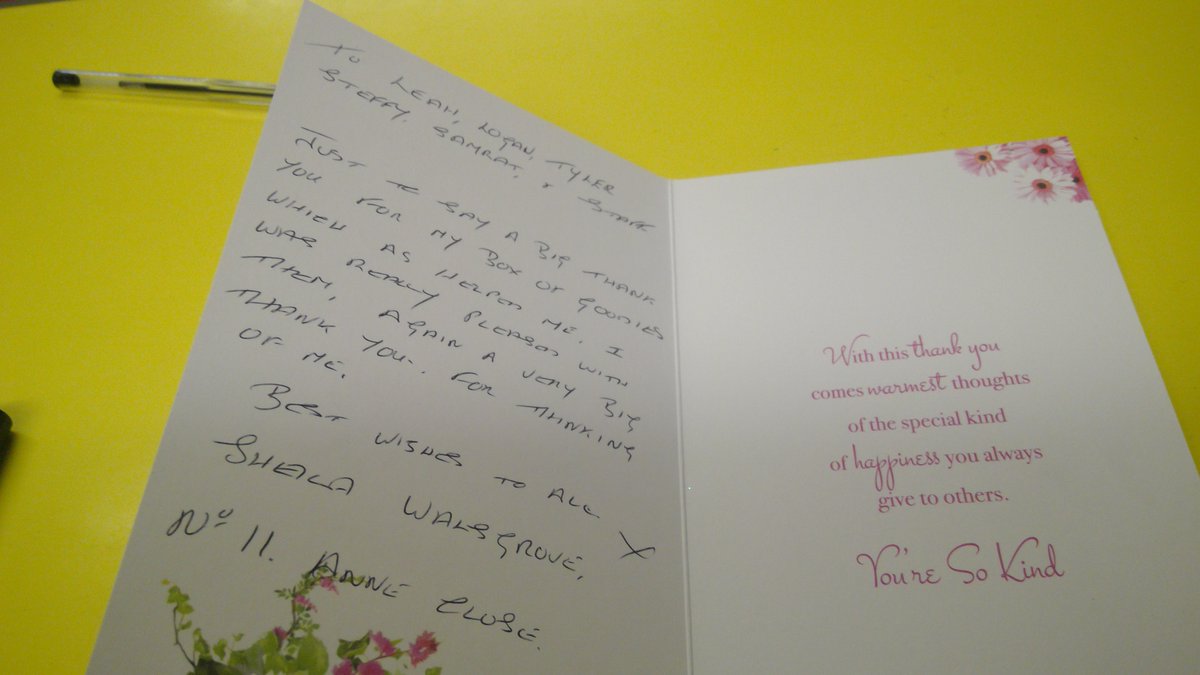 To Leah, Logan, Tyler
Steffy, Samrat, & Staff
Just to say a Big Thank
you for my Box of Goodies
which as helped me. I
was really pleased with
them, again a very Big
Thank you. For thinking
of me.
Best wishes to all X
Sheila Walsgrove,
No 11. Anne Close.
With this thank you
comes warmest thoughts
of the special kind
of happiness you always
give to others.
You're So Kind